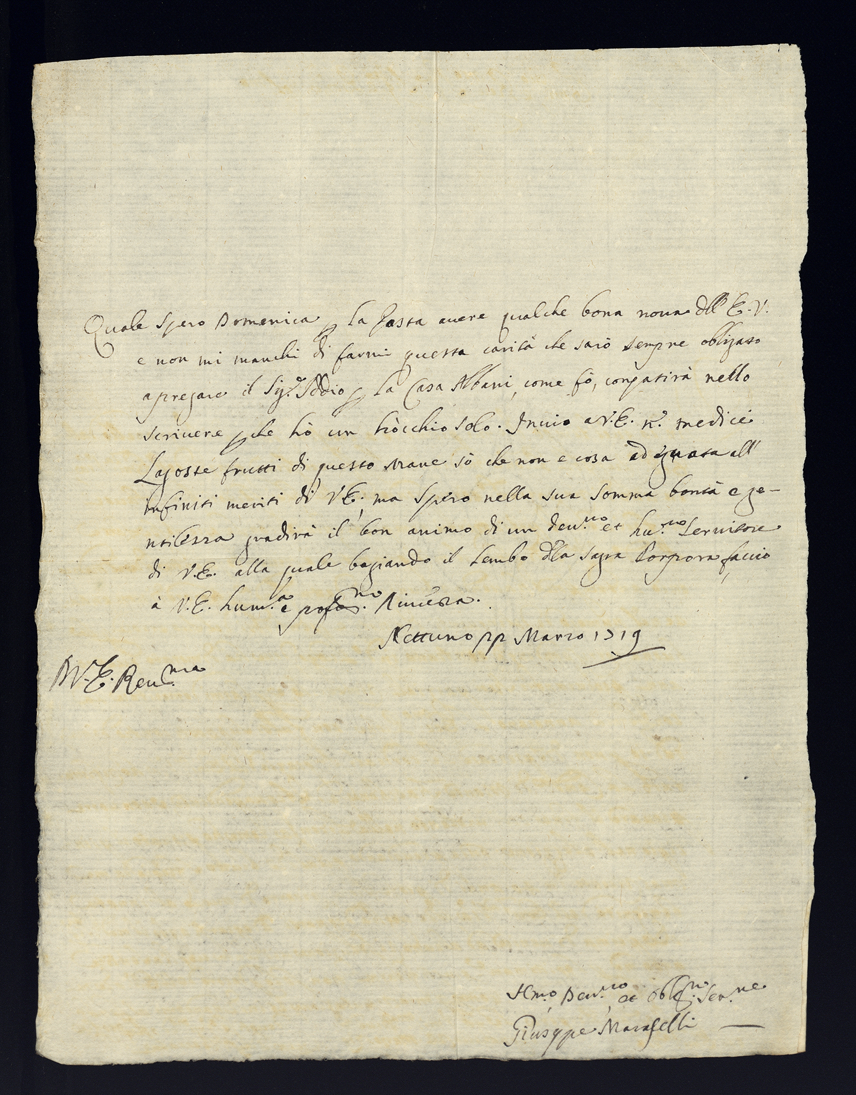 Quale Spero Domenica p la Posta auere qualche bona noua dell' E. V.
e non mi manchi di farmi questa carità che sarò sempre obligato
a pregare il Sig.r Iddio p la Casa Albani, come fò, conpatirà nello
scriuere p che hò un hocchio solo. Inuio a V.E. n.o medici
Lagoste frutti di questo Mare sò che non e cosa adequata all'
infiniti meriti di V.E. ma spero nella sua somma bontà e ge-
ntilezza gradirà il bon animo di un deu.mo et hu.mo Seruitore
di V.E. alla quale baciando il Lembo d'lla sagra Porpora faccio
à V.E. hum.a e profo.ma Riuerza.
Nettuno pp Marzo 1719
D V. E. Reu.ma
Hmo Deu.mo et obb.mo Ser.re
Giuseppe